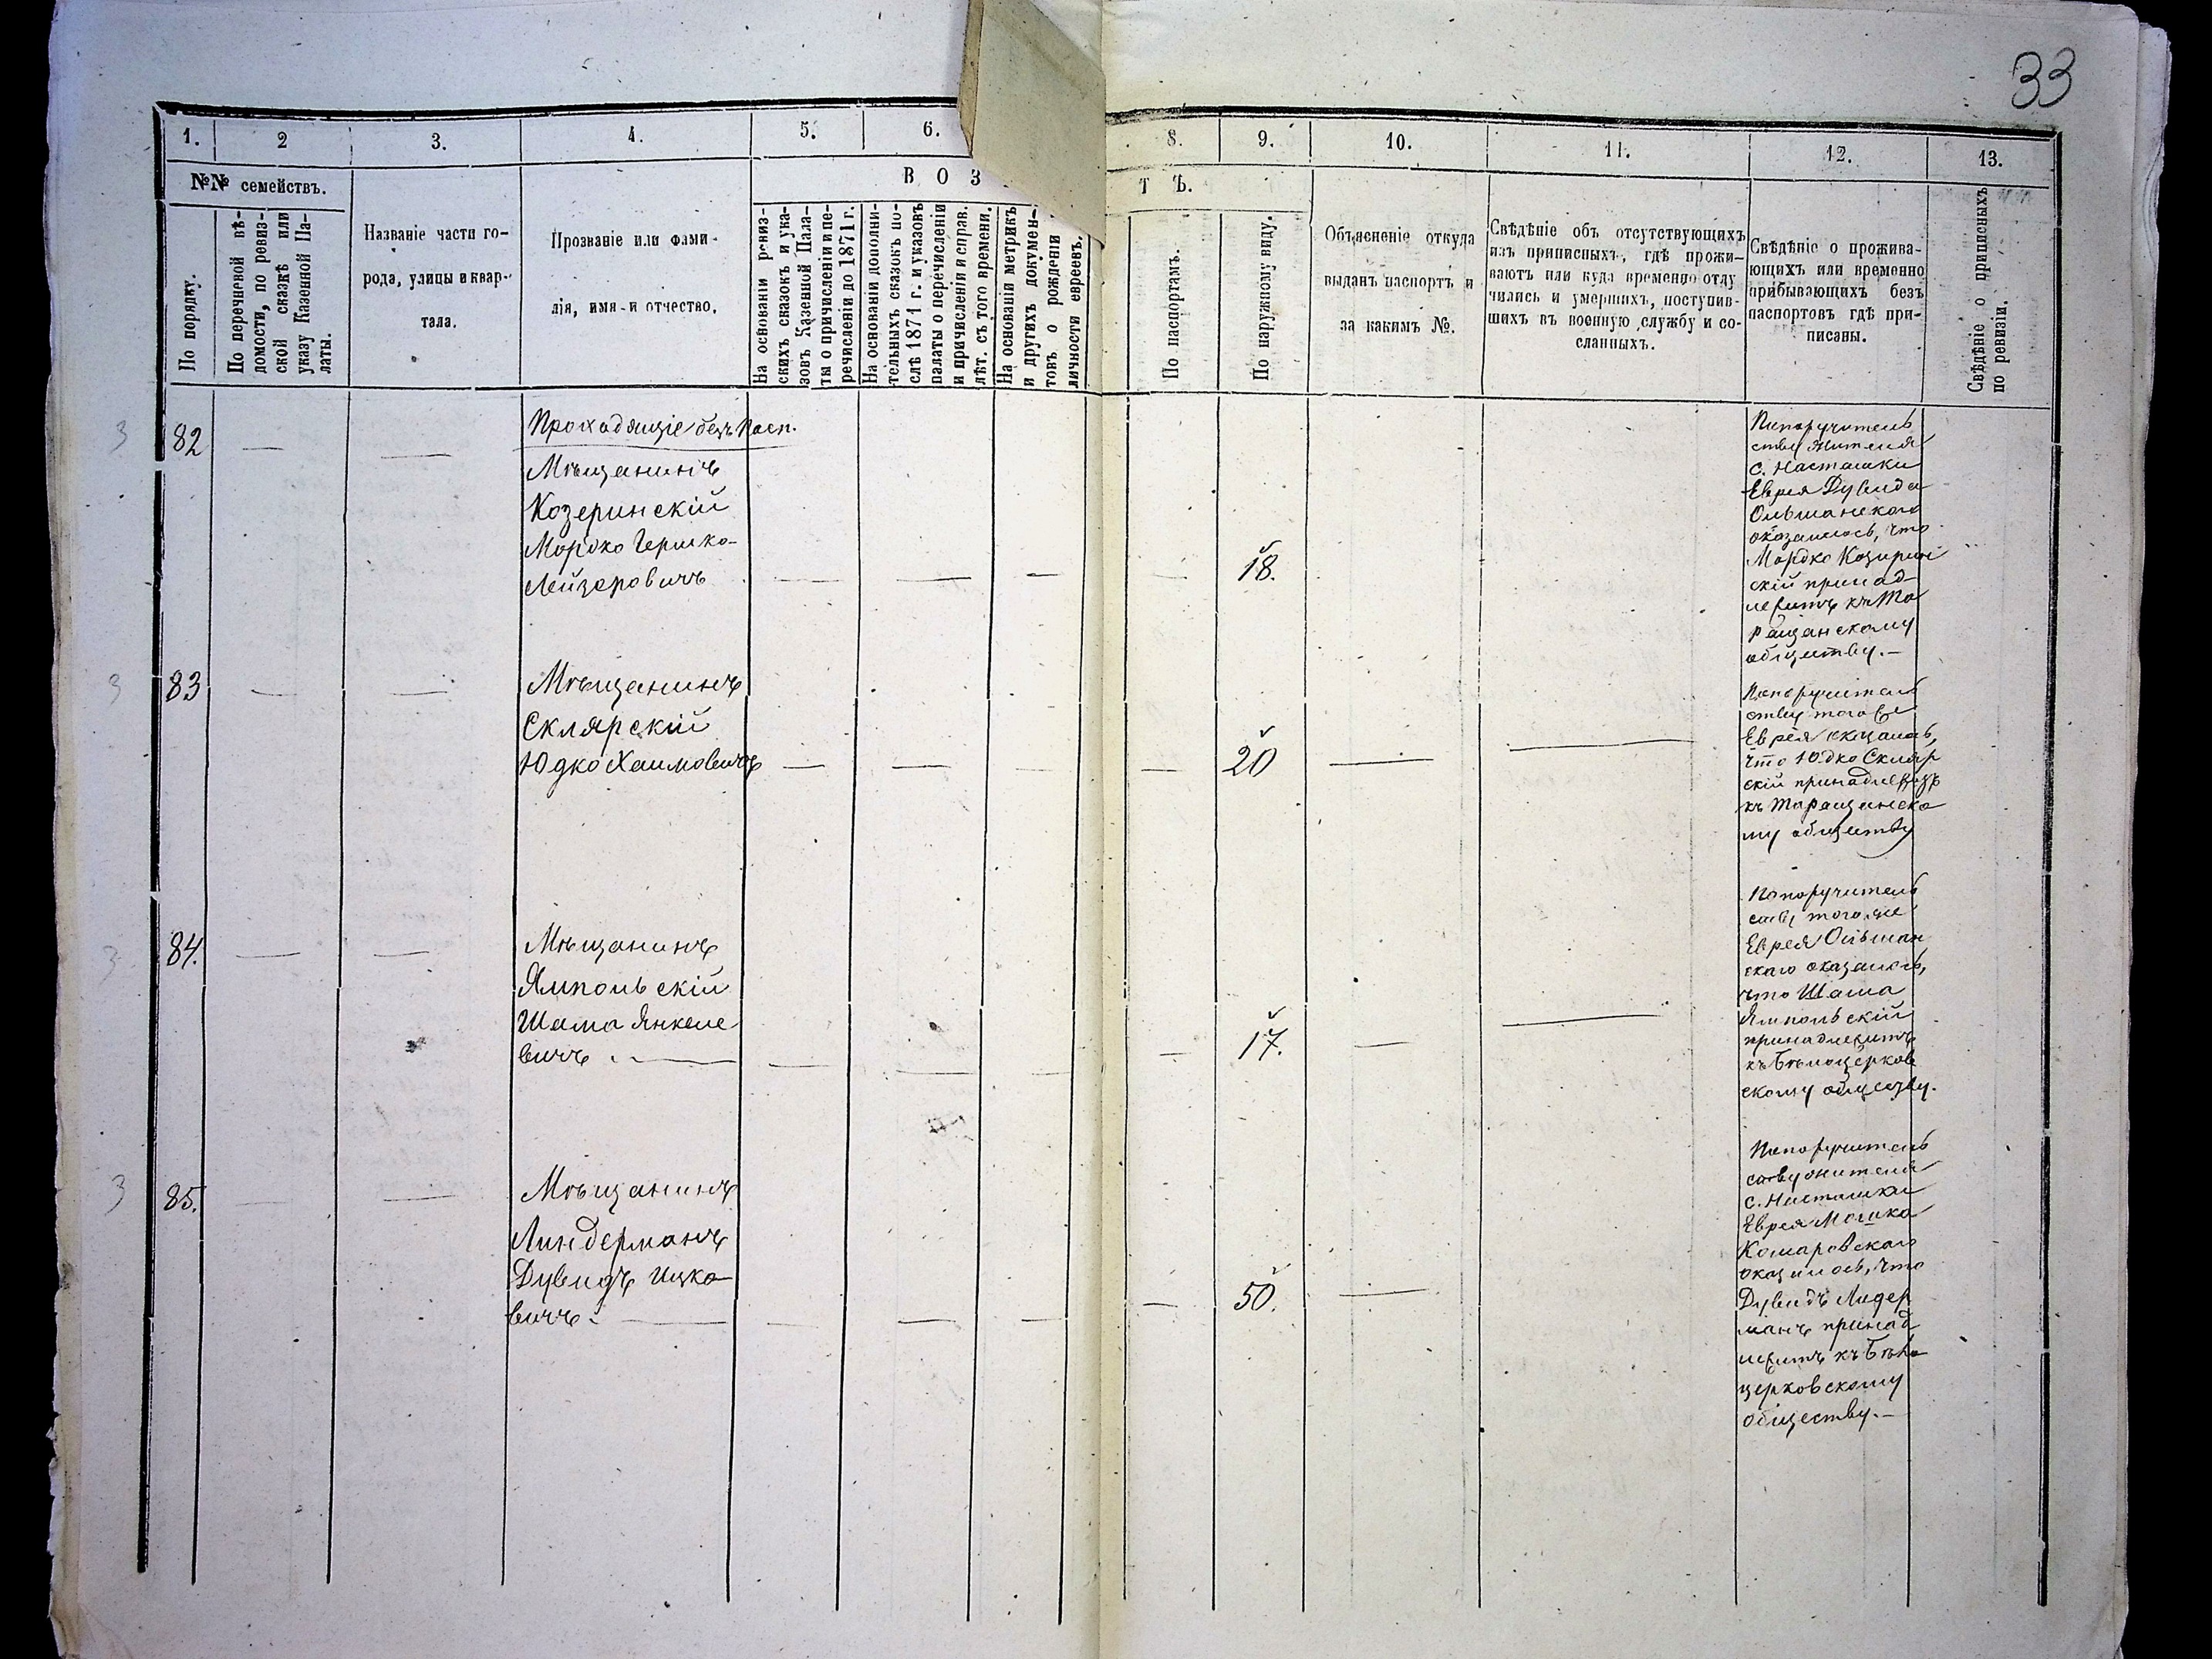 33
1.
2
3.
4.
5.
6.
8.
9.
10.
11.
12.
13.
№№ семействъ.
В О З
Т Ъ.
По порядку.
По перечневой вѣ-
домости, по ревиз-
ской сказкѣ или
указу Казенной Па-
латы.
Названіе части го-
рода, улицы и квар-
тала.
Прозваніе или фами-
лія, имя и отчество.
На основаніи ревиз-
скихъ сказокъ и ука-
зовъ Казенной Пала-
ты о причисленіи и пе-
речисленіи до 1871 г.
На основаніи дополни-
тельныхъ сказокъ по-
слѣ 1871 г. и указовъ
палаты о перечисленіи
и причисленіи и справ.
лѣт. съ того времени.
На основаніи метрикъ
и другихъ докумен-
товъ о рожденіи
личности евреевъ.
По паспортамъ.
По наружному виду.
Объясненіе откуда
выданъ паспортъ и
за какимъ №.
Свѣдѣніе объ отсутствующихъ
изъ приписныхъ, гдѣ прожи-
ваютъ или куда временно отлу
чились и умершихъ, поступив-
шихъ въ военную службу и со-
сланныхъ.
Свѣдѣніе о прожива-
ющихъ или временно
прибывающихъ безъ
паспортовъ гдѣ при-
писаны.
Свѣдѣніе о приписныхъ
по ревизіи.
3
82
Проходящіе безъ Пасп.
Мѣщанинъ
Козеринскій
Мордко Гершко-
Лейзеровичъ
18.
По поручитель
ству жителя
с. Насташки
Еврея Дувида
Ольшанского
оказалось, что
Мордко Козерин
скій принад-
лежитъ къ Та
ращанскому
обществу.—
3
83
Мѣщанинъ
Склярскій
Юдко Хаимовичъ
20
По поручитель
ству того же
Еврея оказалось,
что Юдко Скляр
скій принадлежитъ
къ Таращанско
му обществу
3
84.
Мѣщанинъ
Ямпольскій
Шама Янкеле-
вичъ
17.
По поручитель
ству того же
Еврея Ольшан
скаго оказалось,
что Шама
Ямпольскій
принадлежитъ
къ Бѣлоцерков
скому обществу.
3
85.
Мѣщанинъ
Линдерманъ
Дувидъ Ицко-
вичъ
50.
По поручитель
ству жителя
с. Насташки
Еврея Мошка
Комаровскаго
оказалось, что
Дувидъ Лидер
манъ принад
лежитъ къ Бѣло
церковскому
обществу.—